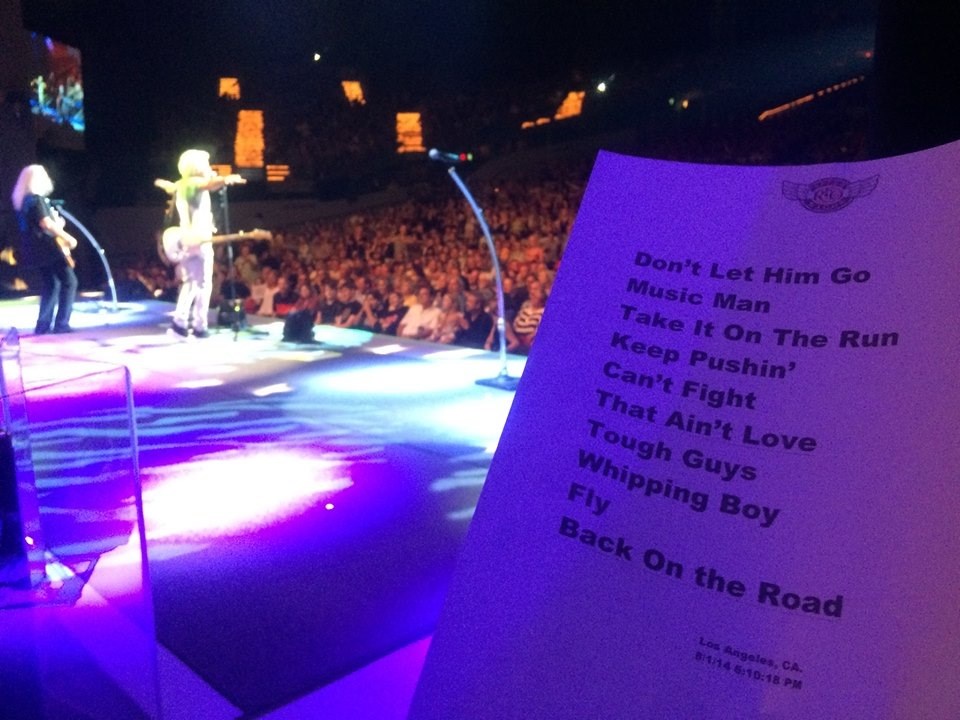 Don't Let Him Go
Music Man
Take It On The Run
Keep Pushin'
Can't Fight
That Ain't Love
Tough Guys
Whipping Boy
Fly
Back On the Road
Los Angeles, CA.
8/1/14 6:10:18 PM